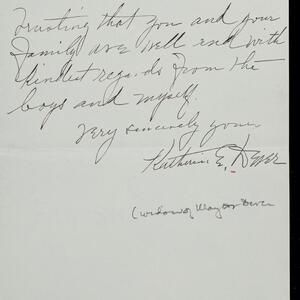 Trusting that you and your
family are well and with
kindest regards from the
boys and myself.
Very sincerely yours
Katherine E. Dever
(widow of Mayor Dever